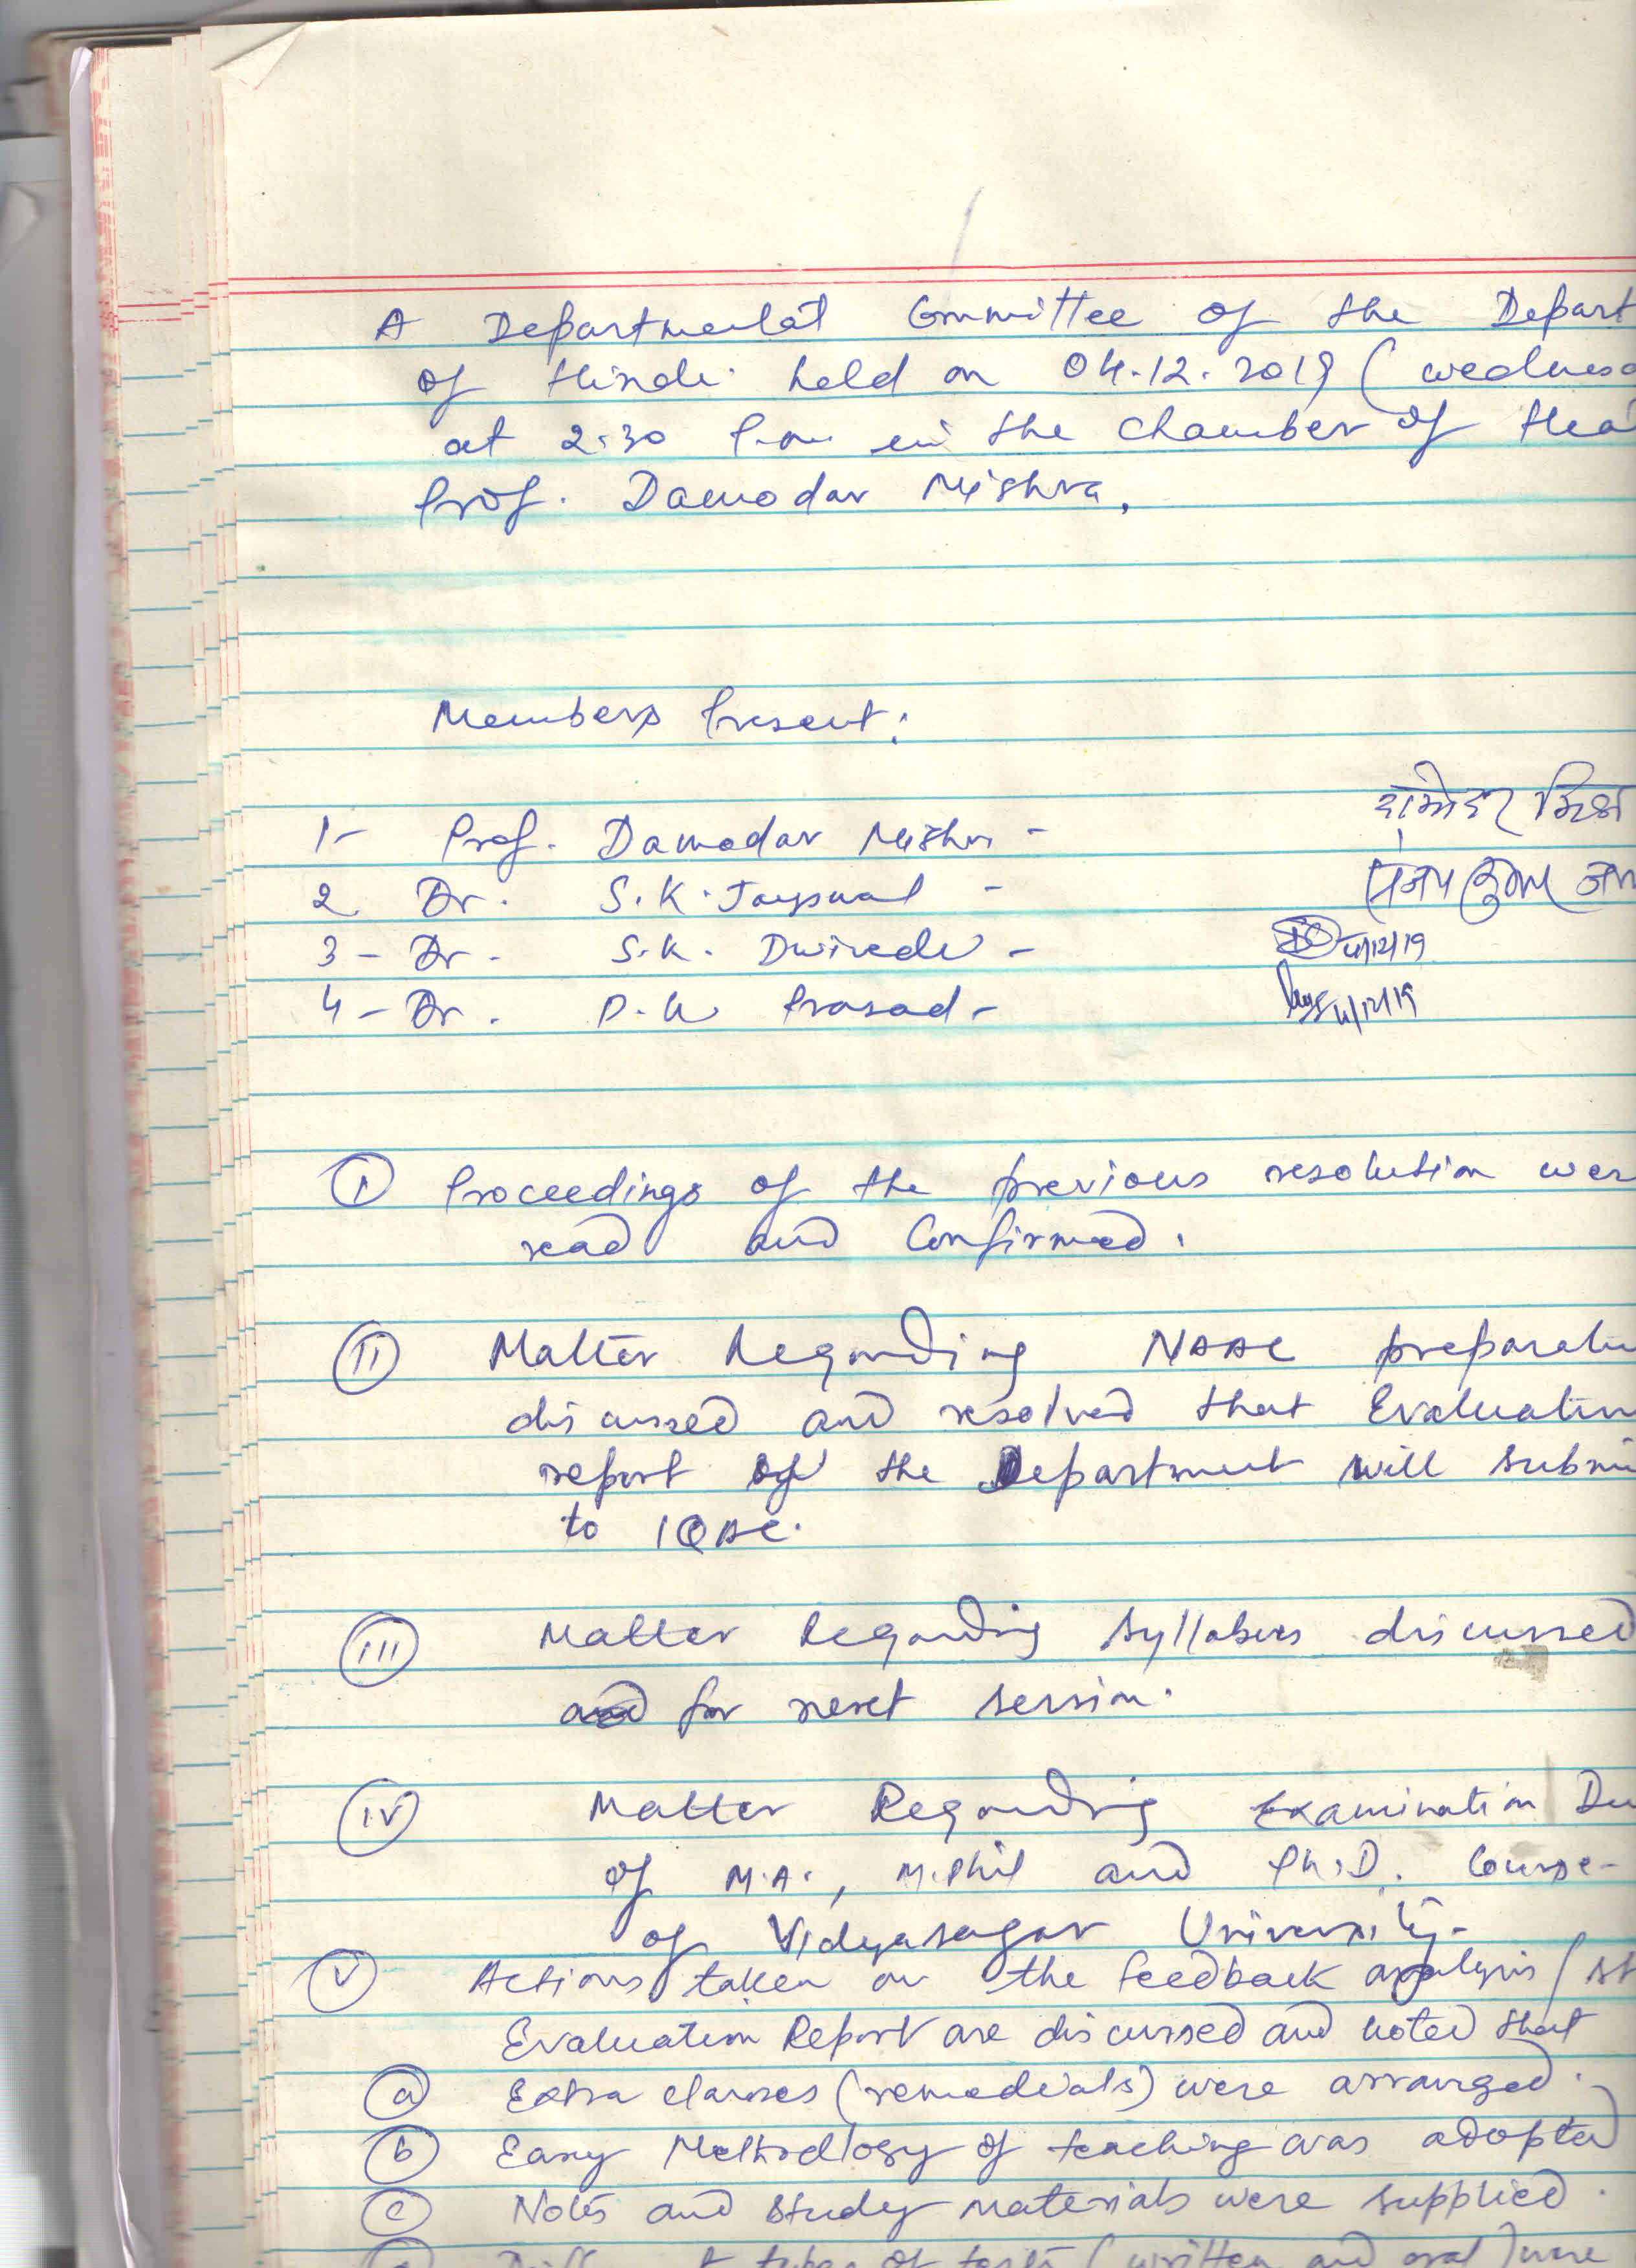 A Departmental Committee of the Depart
of Hindi held on 04.12.2019 (wednesd
at 2.30 P.m in the chamber of Hea
Prof. Damodar Mishra.
Members Present:
1- Prof. Damodar Mishra - दामोदर मिश्र
2 Dr. S.K. Jayswal - संजय कुमार जा
3 - Dr. S.K. Dwivedi - 4/12/19
4 - Dr. P.K Prasad - 4/12/19
(I) Proceedings of the previous resolution wer
read and Confirmed.
(II) Matter Regarding NAAC preparatio
discussed and resolved that Evaluation
report of the Department will submi
to IQAC.
(III) Matter Regarding Syllabus discussed
for next session.
(IV) Matter Regarding Examination Du
of M.A., M.Phil and Ph.D. Course-
of Vidyasagar University-
(V) Actions taken on the feedback analysis / St
Evaluation Report are discussed and noted that
(a) Extra classes (remedials) were arranged.
(b) Easy Methodlogy of teaching was adopted
(c) Notes and study materials were supplied.
types of tests (written and oral) were